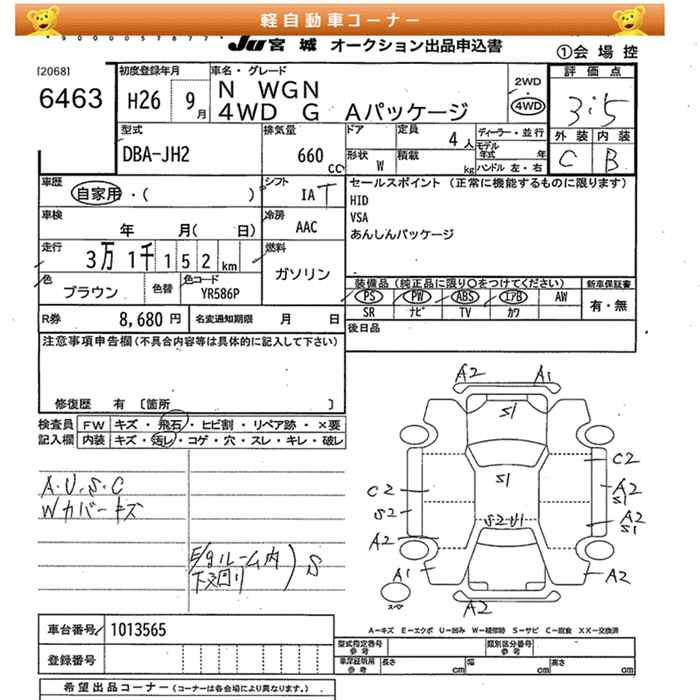 軽自動車コーナー
JU宮城 オークション出品申込書
①会場控
[2068]
6463
初度登録年月
H26 9月
車名・グレード
N WGN
4WD G Aパッケージ
2WD
4WD
評価点
3.5
外装 内装
C B
型式
DBA-JH2
排気量
660 cc
ドア
定員
4人
形状
W
積載
kg
ディーラー・並行
モデル年式 年
ハンドル 左・右
車歴
自家用・( )
シフト
IAT
車検
年 月( 日)
冷房
AAC
走行
3万1千152km
燃料
ガソリン
色
ブラウン
色替
色コード
YR586P
セールスポイント (正常に機能するものに限ります)
HID
VSA
あんしんパッケージ
装備品 (純正品に限り〇をつけてください)
PS PW ABS エアB AW
SR ナビ TV カワ
新車保証書
有・無
R券 8,680円 名変通知期限 月 日
後日品
注意事項申告欄(不具合内容等は具体的に記入して下さい)
修復歴 有 〔箇所 〕
検査員記入欄
FW キズ・飛石・ヒビ割・リペア跡・×要
内装 キズ・汚レ・コゲ・穴・スレ・キレ・破レ
A・U・S・C
Wカバーキズ
E/gルーム内
下回り
) S
A2 A1
S1
S1
S2U1
C2
A2
S1
A2
S1
A2
C2
S2
A2
A1
A2
スペア
車台番号 1013565
登録番号
A-キズ E-エクボ U-凹み W-補修跡 S-サビ C-腐食 XX-交換済
型式指定番号 参考
類別区分番号 参考
車庫証明用 参考
長さ cm 幅 cm 高さ cm
希望出品コーナー (コーナーは各会場により異なります。)